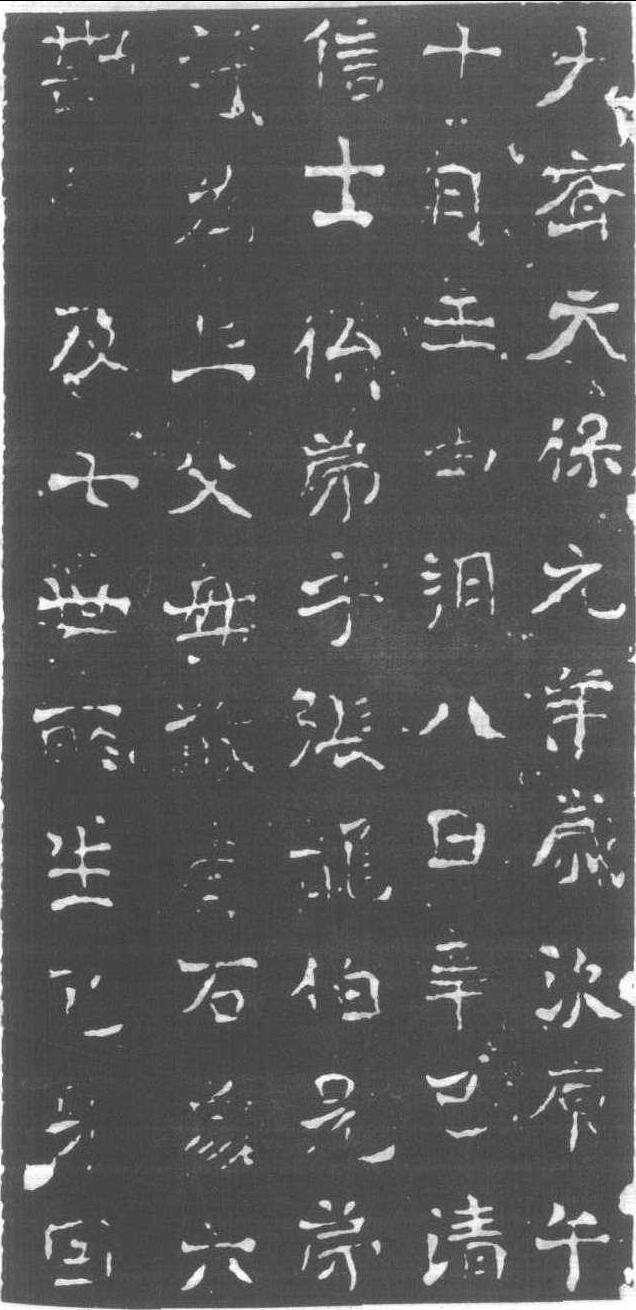 大齊天保元年歲次庚午
十月壬朔八日辛巳清
信士仏弟子張龍伯兄弟
為亡父母敬造石像六
及七世所生